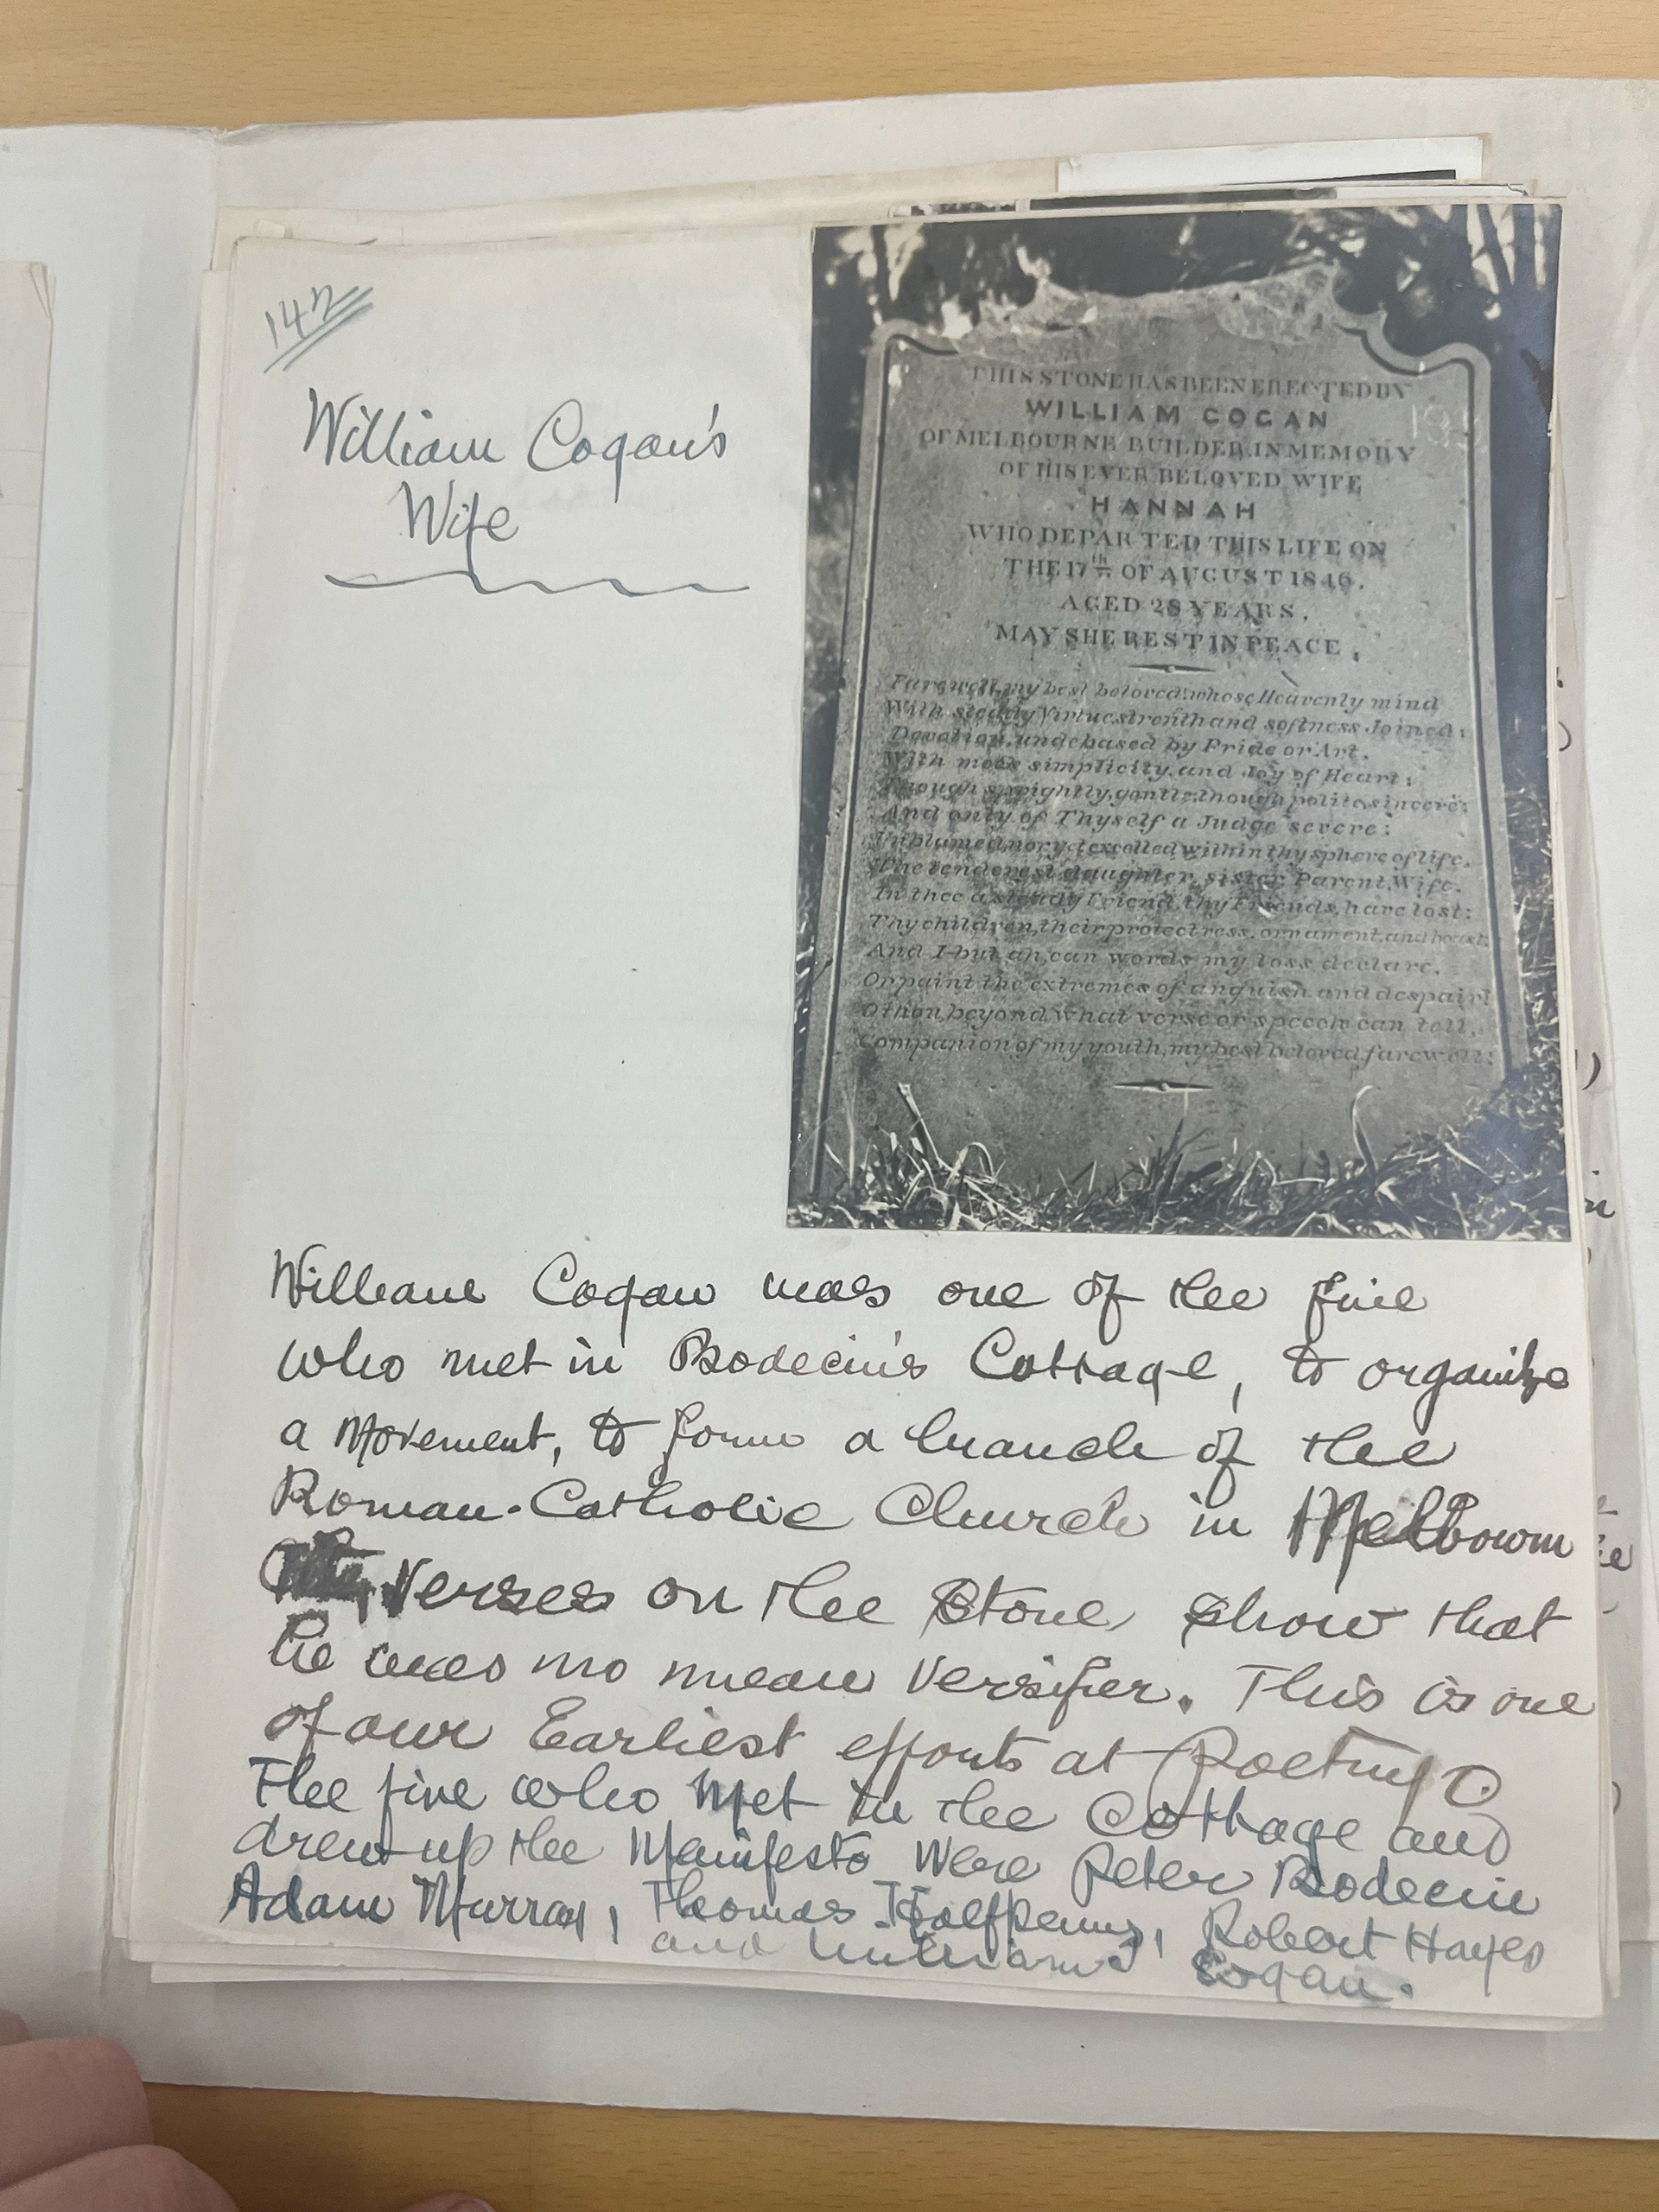 147
William Cogan's
Wife
THIS STONE HAS BEEN ERECTED BY
WILLIAM COGAN
OF MELBOURNE BUILDER, IN MEMORY
OF HIS EVER BELOVED WIFE
HANNAH
WHO DEPARTED THIS LIFE ON
THE 17th OF AUGUST 1846.
AGED 28 YEARS.
MAY SHE REST IN PEACE.
Farewell, my best beloved; whose Heavenly mind
With steady Virtue, strenth and softness Joined;
Devotion, undebased by Pride or Art.
With meek simplicity, and Joy of Heart;
Though sprightly, gentle; though polite, sincere;
And only of Thyself a Judge severe;
Unblamed, nor excelled within thy sphere of life,
The tenderest daughter, sister, Parent, Wife.
In thee a steady Friend, thy Friends, have lost;
Thy children, their protectress, ornament, and boast;
And I-but ah, can words my loss declare,
Or paint the extremes of anguish and despair!
O thou, beyond, what verse or speech can tell,
Companion of my youth, my best beloved, farewell;
William Cogan was one of the five
who met in Bodecin's Cottage, to organize
a Movement, to form a branch of the
Roman-Catholic Church in Melbourn
Verses on the Stone show that
he was no mean Versifier. This is one
of our Earliest efforts at Poetry
The five who Met in the Cottage and
drew up the Manifesto Were Peter Bodecin
Adam Murray, Thomas Halfpenny, Robert Hayes
and William Cogan.